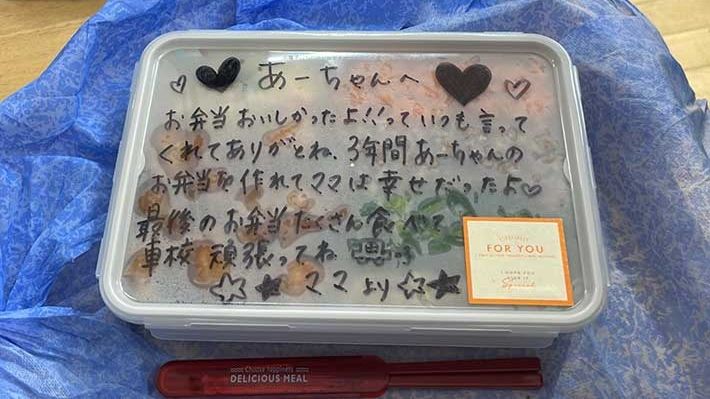 あーちゃんへ
お弁当おいしかったよ!!っていつも言って
くれてありがとね、3年間あーちゃんの
お弁当を作れてママは幸せだったよ♡
最後のお弁当たくさん食べて
車校頑張ってね
ママより
FOR YOU
I HOPE YOU
LIKE IT
Special
Choose happiness
DELICIOUS MEAL